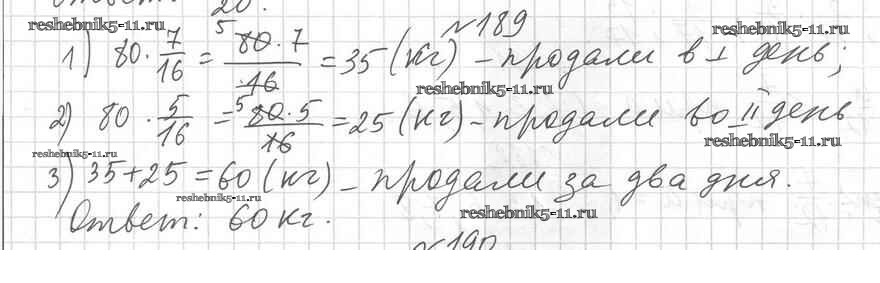 20.
reshebnik5-11.ru reshebnik5-11.ru
№189
1) 80 · 7/16 = 80 · 7/16 = 35 (кг) – продали в I день;
5
reshebnik5-11.ru
2) 80 · 5/16 = 80 · 5/16 = 25 (кг) – продали во II день
5
reshebnik5-11.ru
reshebnik5-11.ru
3) 35 + 25 = 60 (кг) – продали за два дня.
reshebnik5-11.ru
Ответ: 60 кг.
reshebnik5-11.ru
№190